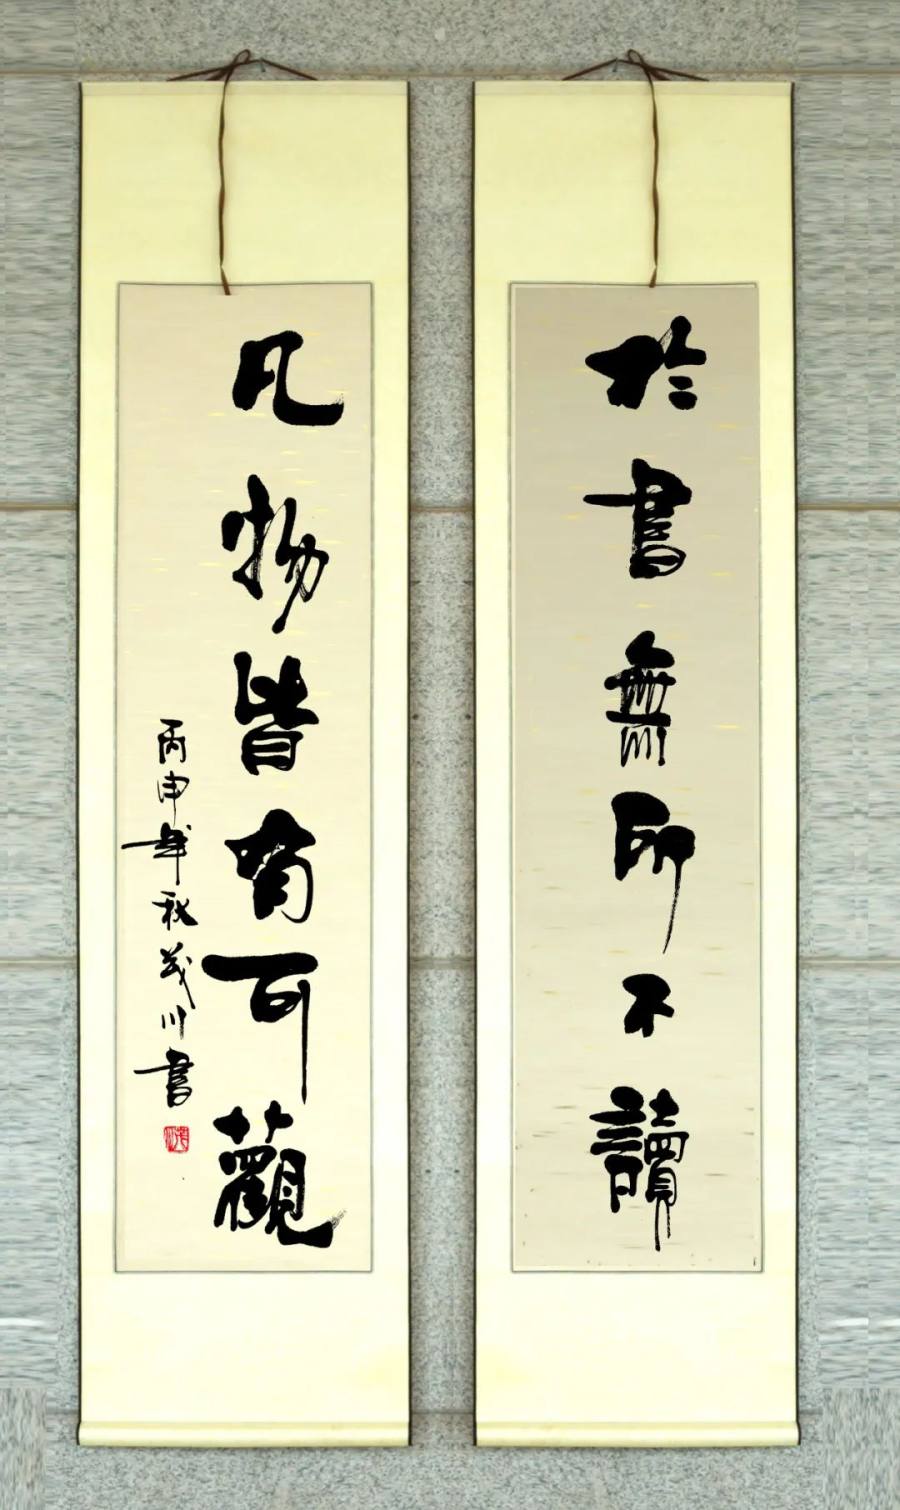 於書無所不讀
凡物皆有可觀
丙申年秋茂川書